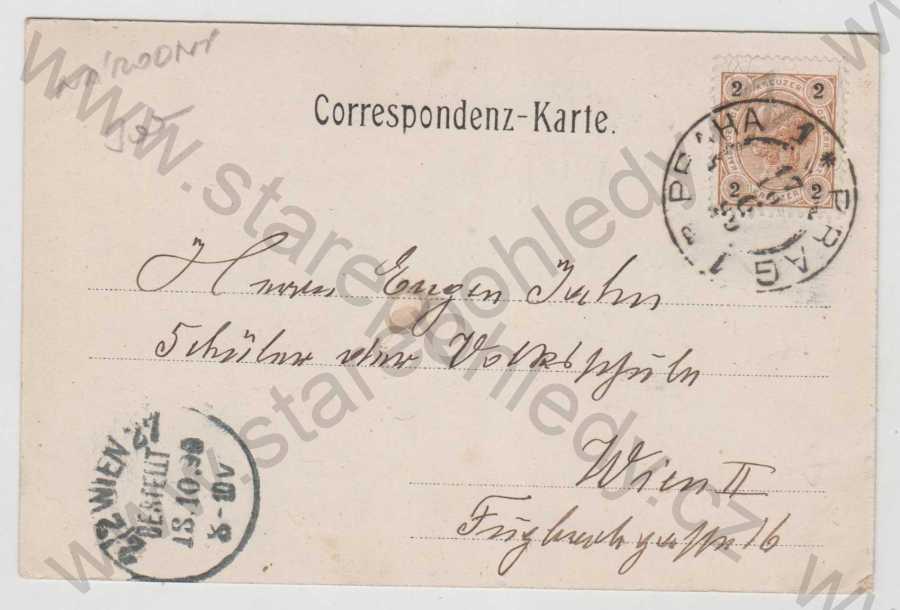 NÁRODNÍ
Correspondenz-Karte.
2 KREUZER 2
2 2
PRAHA 1 * PRAG 1
17
Herrn Eugen Jahn
Schüler der Volksschule
Wien II
Fugbachgasse 16
WIEN
BESTELLT
18.10.98
8-10V
www.starepohledy.cz
www.starepohledy.cz